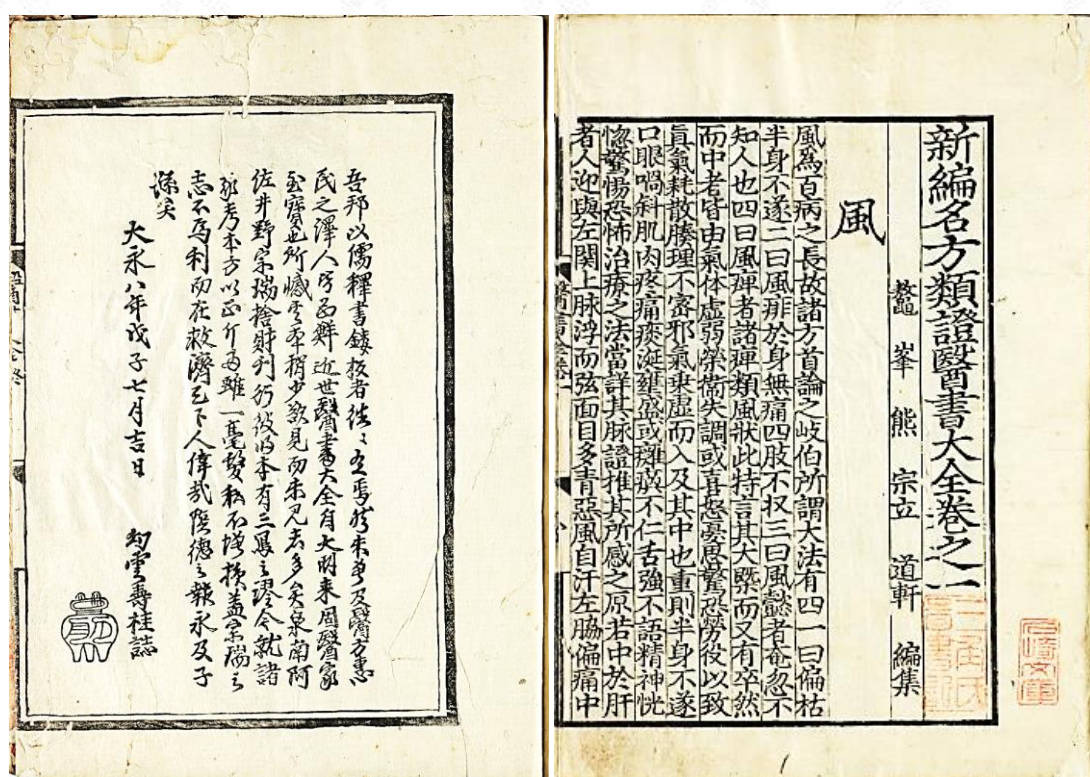 新編名方類證醫書大全卷之一
鰲峯 熊 宗立 道軒 編集
風
風爲百病之長故諸方首論之岐伯所謂大法有四一曰偏枯
半身不遂二曰風痱於身無痛四肢不収三曰風懿者奄忽不
知人也四曰風痺者諸痺類風狀此特言其大槩而又有卒然
而中者皆由氣体虛弱榮衛失調或喜怒憂思驚恐勞役以致
眞氣耗散腠理不密邪氣乗虛而入及其中也重則半身不遂
口眼喎斜肌肉疼痛痰涎壅盛或癱瘓不仁舌強不語精神恍
惚驚惕恐怖治療之法當詳其脉證推其所感之原若中於肝
者人迎與左關上脉浮而弦面目多青惡風自汗左脇偏痛中
吾邦以儒釋書鏤板者往々在焉然未曾及醫方惠
民之澤人皆爲鮮近世醫書大全自大明来固醫家
至寶也所憾其本稍少欲見而未見者多矣泉南阿
佐井野宗瑞捨財刊行彼旧本有三冩之謬今就諸
家考本方以正斤兩雖一毫髮私不増損蓋宗瑞之
志不爲利而在救濟天下人偉哉陰德之報永及子
孫矣
大永八年戊子七月吉日 幻雲壽桂誌